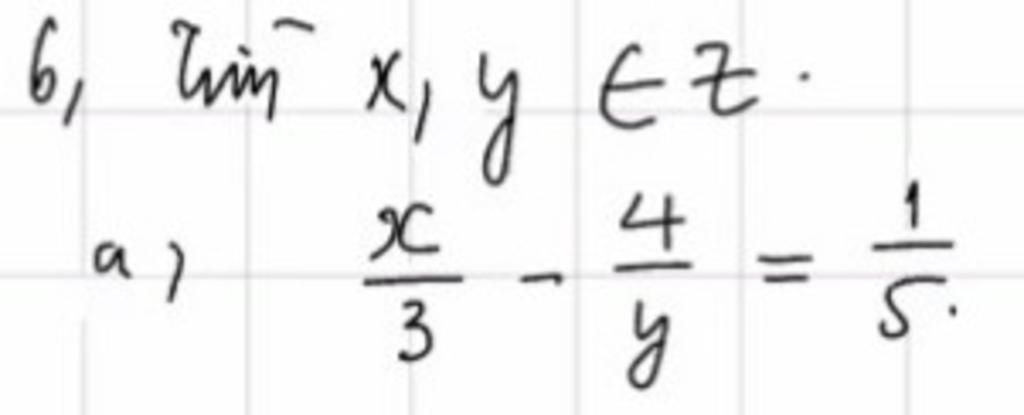 6, Tìm x, y ∈ Z.
a, x/3 - 4/y = 1/5.